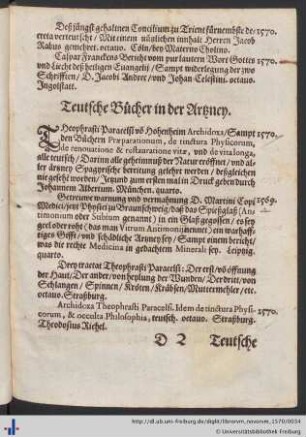 Deß jüngst gehaltnen Concilium zu Trient fürnembste de- 1570.
creta verteutscht / Mit einem nützlichen innhalt Herren Jacob
Rabus gemehret. octavo. Cöln / bey Materno Cholino.
Caspar Franckens Bericht vom pur lautern Wort Gottes 1570.
und Liecht deß heiligen Euangelij / Sampt widerlegung der zwo
Schrifften / D. Jacobi Andree / und Johan Celestini. octavo.
Ingolstatt.
Teutsche Bücher in der Artzney.
THeophrasti Paracelsi vō Hohenheim Archidoxa / Sampt 1570.
den Büchern Præparationum, de tinctura Physicorum,
de renouatione & restauratione vitæ, und de vita longa,
alle teutsch / Darinn alle geheimnuß der Natur eröffnet / und al-
ler artzney Spagyrische bereitung gelehrt werden / deßgleichen
nie gesehē worden / Jetzund zum ersten mal in Druck geben durch
Johannem Albertum. München. quarto.
Getreuwe warnung und vermahnung D. Martini Copi 1569.
Medici / jetzt Physici zu Braunschweig / daß das Spießglaß (An-
timonium oder Stibium genannt) in ein Glaß gegossen / es sey
geel oder roht (das man Vitrum Antimonij nennet) ein warhaff-
tiges Gifft / und schädliche Artzney sey / Sampt einem bericht /
was die rechte Medicina in gedachtem Minerali sey. Leipzig.
quarto.
Drey tractat Theophrasti Paracelsi: Der erst / vō öffnung
der Haut / Der ander / von heylung der Wunden / Der drit / von
Schlangen / Spinnen / Kroten / Kräbsen / Muttermehler / etc.
octavo. Straßburg.
Archidoxa Theophrasti Paracelsi. Idem de tinctura Physi- 1570.
corum, & occulta Philosophia, teutsch. octavo. Straßburg.
Theodosius Riehel.
D 2 Teutsche
http://dl.ub.uni-freiburg.de/diglit/librorum_novorum_1570/0034
Universitätsbibliothek Freiburg